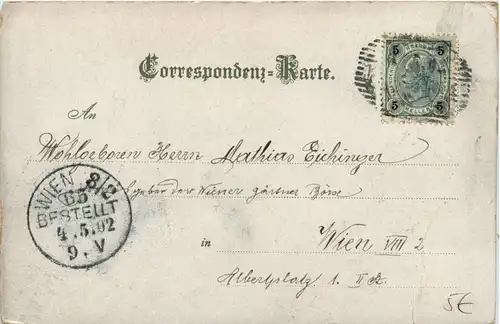 Correspondenz-Karte.
5 5
5 5
An
Wohlgeboren Herrn Mathias Eichinger
der Wiener gärtner Börse
WIEN 8/2
BESTELLT
4.5.02
9. V
in Wien VIII 2
Albertplatz 1. II
5€